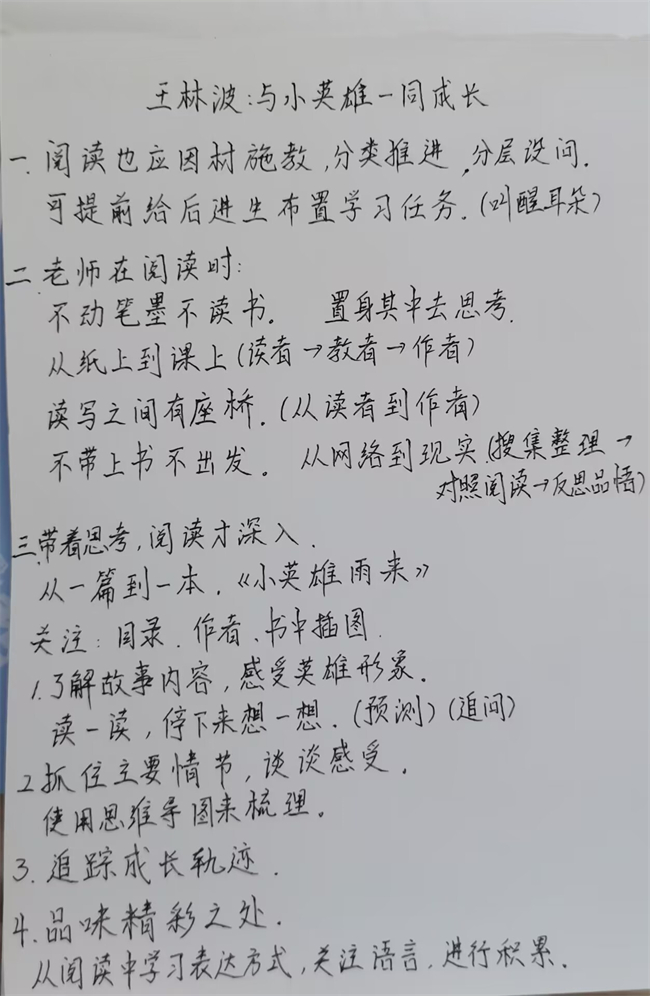 王林波:与小英雄一同成长
一.阅读也应因材施教,分类推进,分层设问.
可提前给后进生布置学习任务.(叫醒耳朵)
二.老师在阅读时:
不动笔墨不读书。 置身其中去思考.
从纸上到课上(读者→教者→作者)
读写之间有座桥.(从读者到作者)
不带上书不出发。 从网络到现实.(搜集整理→
对照阅读→反思品悟)
三.带着思考,阅读才深入.
从一篇到一本.《小英雄雨来》
关注:目录.作者.书中插图.
1.了解故事内容,感受英雄形象.
读一读,停下来想一想.(预测)(追问)
2.抓住主要情节,谈谈感受.
使用思维导图来梳理。
3.追踪成长轨迹.
4.品味精彩之处.
从阅读中学习表达方式,关注语言,进行积累.